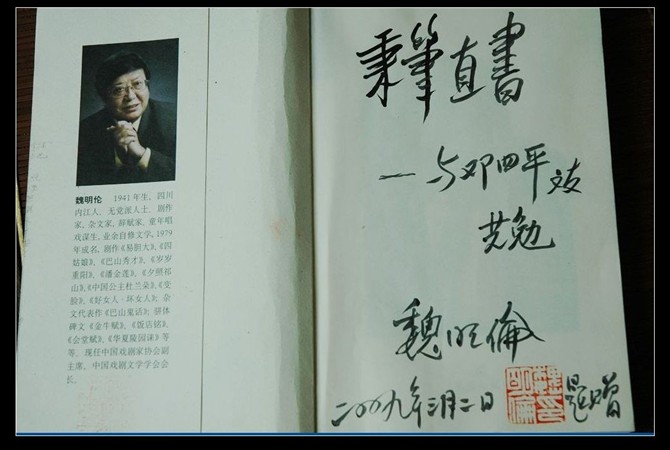 魏明伦 1941年生，四川
内江人，无党派人士，剧作
家，杂文家，辞赋家。童年唱
戏谋生，业余自修文学，1979
年成名，剧作《易胆大》、《四
姑娘》、《巴山秀才》、《岁岁
重阳》、《潘金莲》、《夕照祁
山》、《中国公主杜兰朵》、《变
脸》、《好女人·坏女人》；杂
文代表作《巴山鬼话》；骈体
碑文《金牛赋》、《饭店铭》、
《会堂赋》、《华夏陵园诔》等
等。现任中国戏剧家协会副
主席，中国戏剧文学学会会
长。
秉筆直書
—与邓四平文友
共勉
魏明倫
二00九年三月二日 题赠
魏明倫印